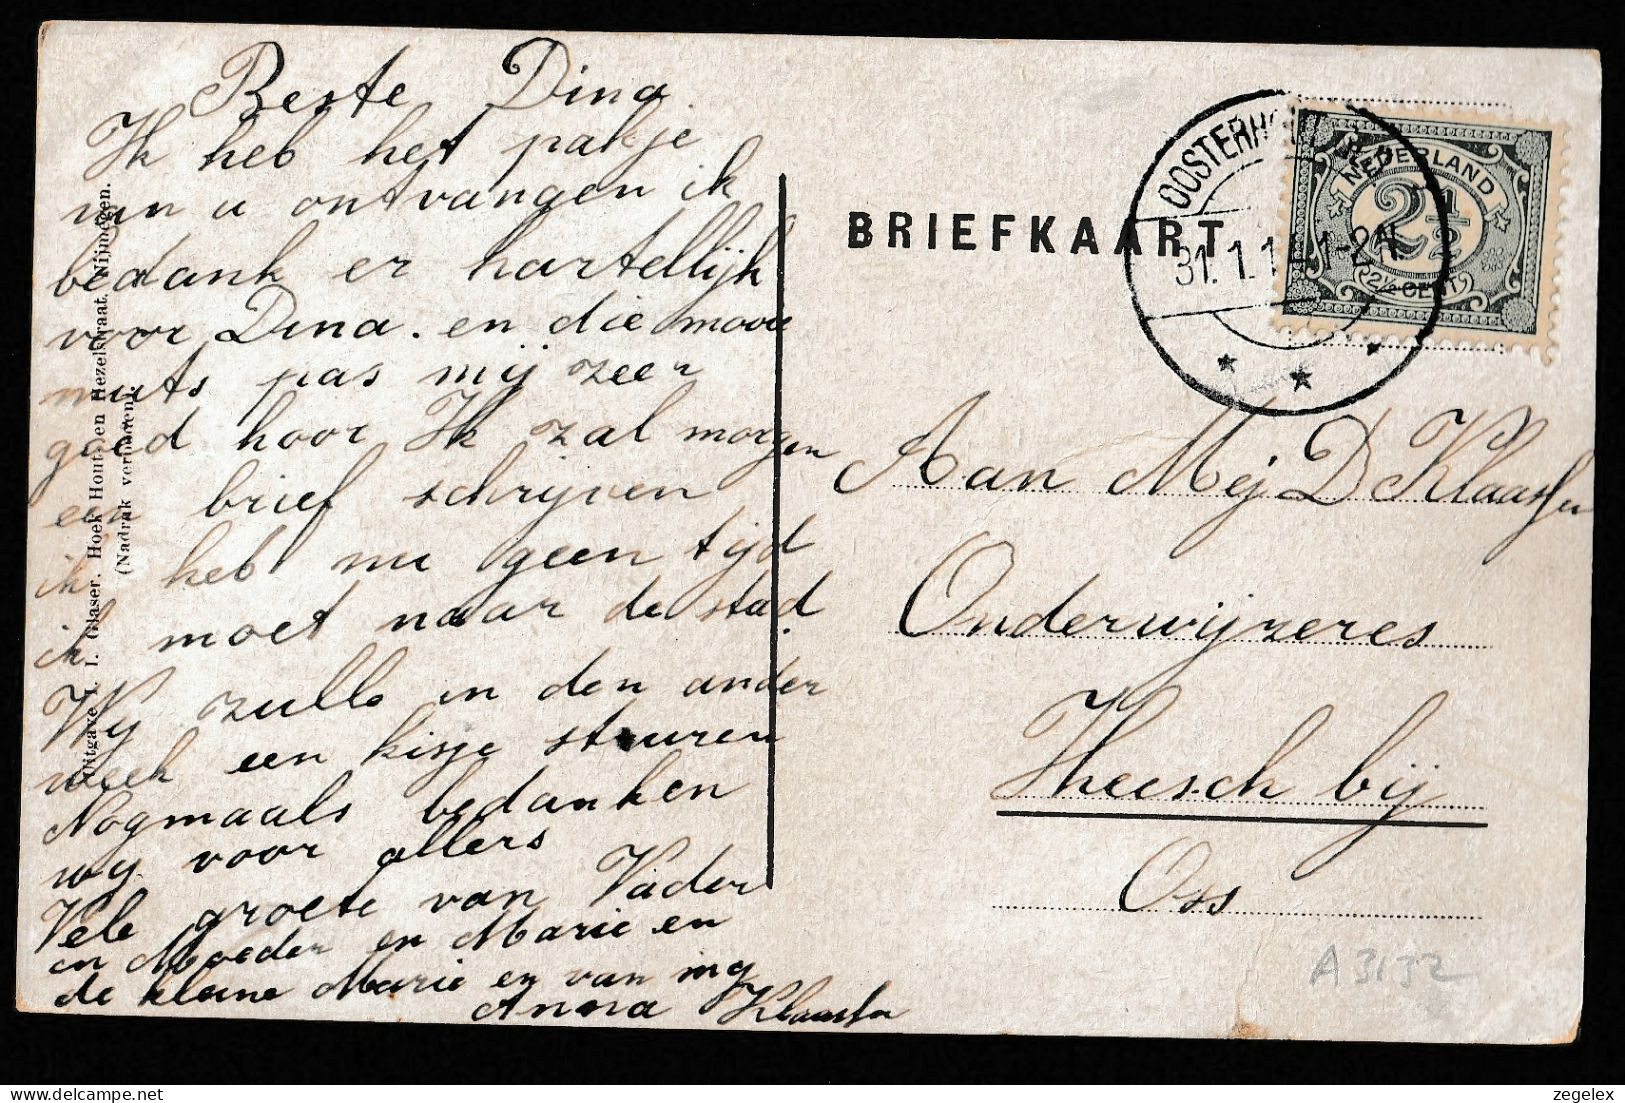 Beste Dina.
Ik heb het pakje
van u ontvangen ik
bedank er hartellijk
voor Dina. en die mooie
muts pas mij zeer
goed hoor Ik zal morgen
een brief schrijven
ik heb nu geen tijd
ik moet naar de stad
Wij zulle in den ander
week een kisje sturen
Nogmaals bedanken
wy voor allers
Vele groete van Vader
en Moeder en Marie en
de kleine Marie en van my
Anna Klaassen
Uitgave J. I. Glaser. Hoek Hout- en Hezelstraat. Nijmegen.
(Nadruk verboden).
BRIEFKAART
OOSTERH
31.1.1 1-2N
NEDERLAND
2½
2½ CENT
Aan Mej D Klaassen
Onderwijzeres
Heesch bij
Oss
A3132
zegelex